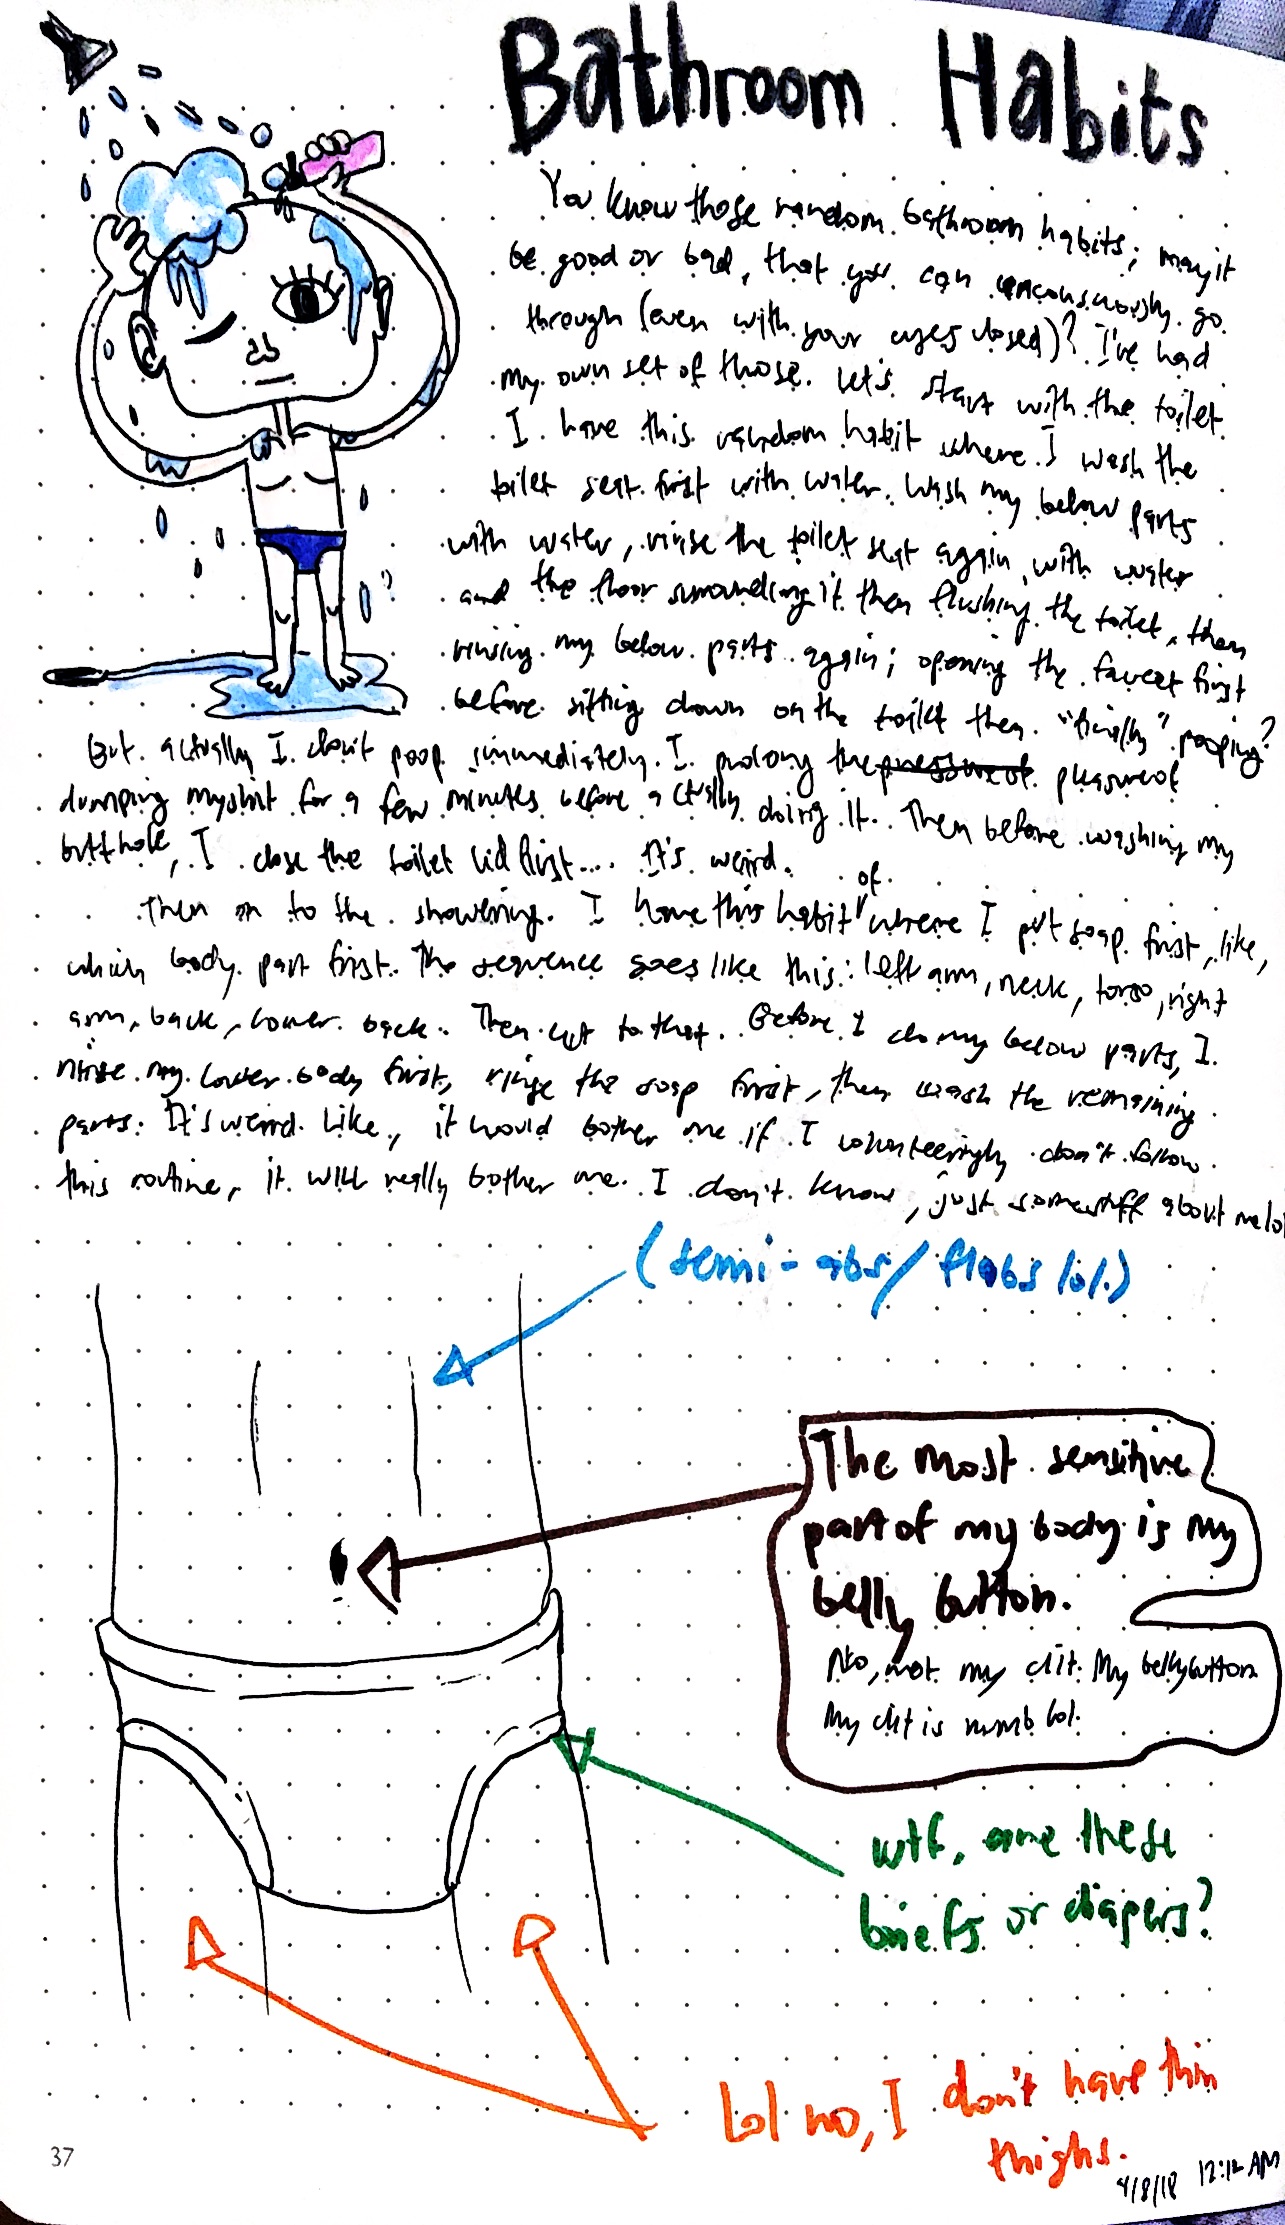 Bathroom Habits
You know those random bathroom habits; may it
be good or bad, that you can unconsciously go
through (even with your eyes closed)? I've had
my own set of those. Let's start with the toilet.
I have this random habit where I wash the
toilet seat first with water. Wash my below parts
with water, rinse the toilet seat again, with water
and the floor surrounding it then flushing the toilet, then
rinsing my below parts again; opening the faucet first
before sitting down on the toilet then "finally" pooping?
But actually I don't poop immediately. I prolong the pleasure of
dumping my shit for a few minutes before actually doing it. Then before washing my
butthole, I close the toilet lid first... It's weird.
Then on to the showering. I have this habit of where I put soap first, like,
which body part first. The sequence goes like this: left arm, neck, torso, right
arm, back, lower back. Then to that. Before I do my below parts, I
rinse my lower body first, rinse the soap first, then wash the remaining
parts. It's weird. Like, it would bother me if I volunteeringly don't follow
this routine, it will really bother me. I don't know, just some stuff about me lol
(semi-abs/ flabs lol.)
The most sensitive
part of my body is my
belly button.
No, not my clit. My bellybutton
My clit is numb lol.
wtf, are these
briefs or diapers?
Lol no, I don't have thin
thighs.
37
4/8/18 12:12 AM